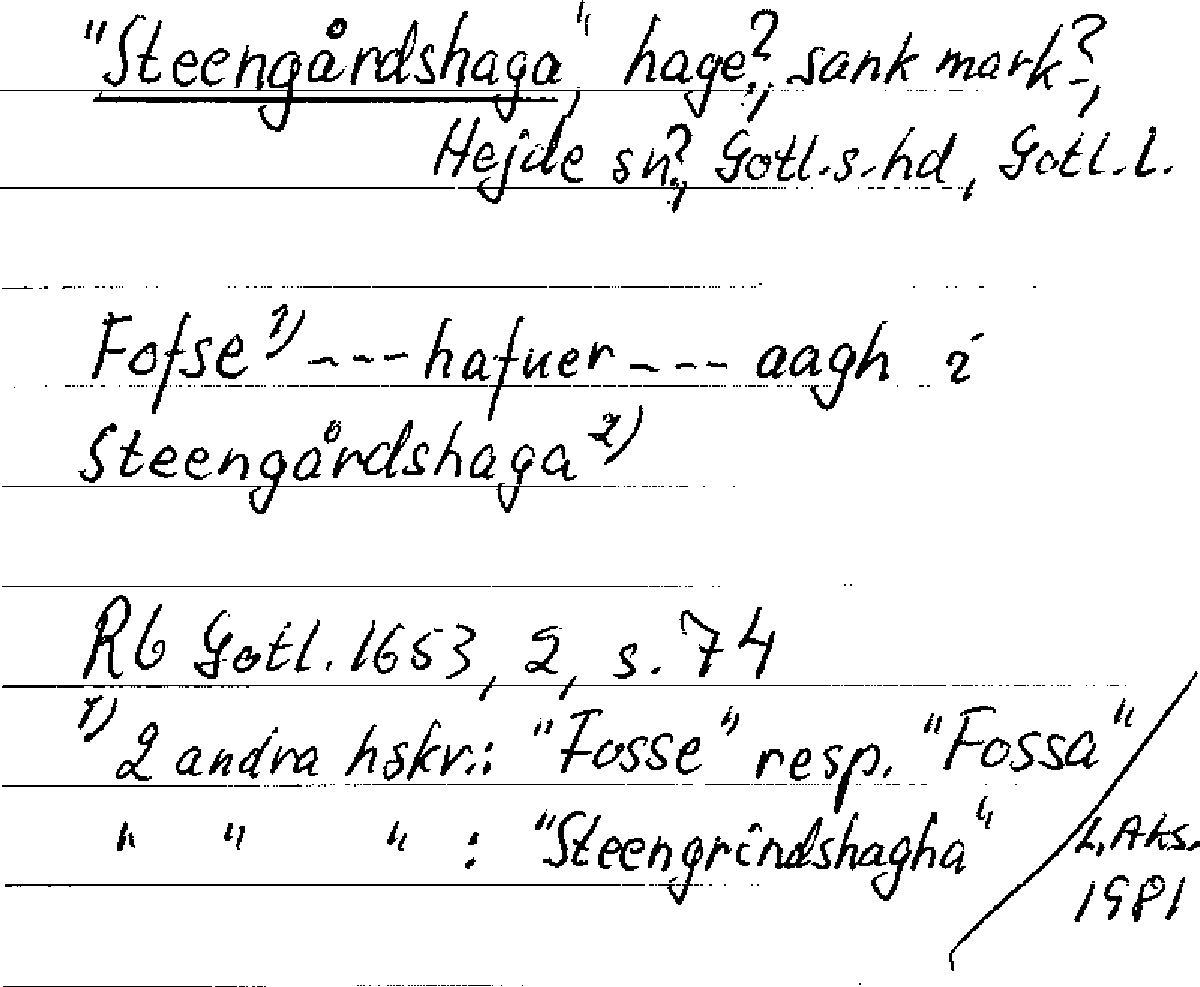 "Steengårdshaga", hage?, sank mark?,
Hejde sn?, Gotl.s.hd, Gotl.l.
Fofse 1) --- hafuer --- aagh i
Steengårdshaga 2)
Rb Gotl. 1653, 2, s. 74
1) 2 andra hskr.: "Fosse" resp. "Fossa"
" " " : "Steengrindshagha"
L. Aks.
1981